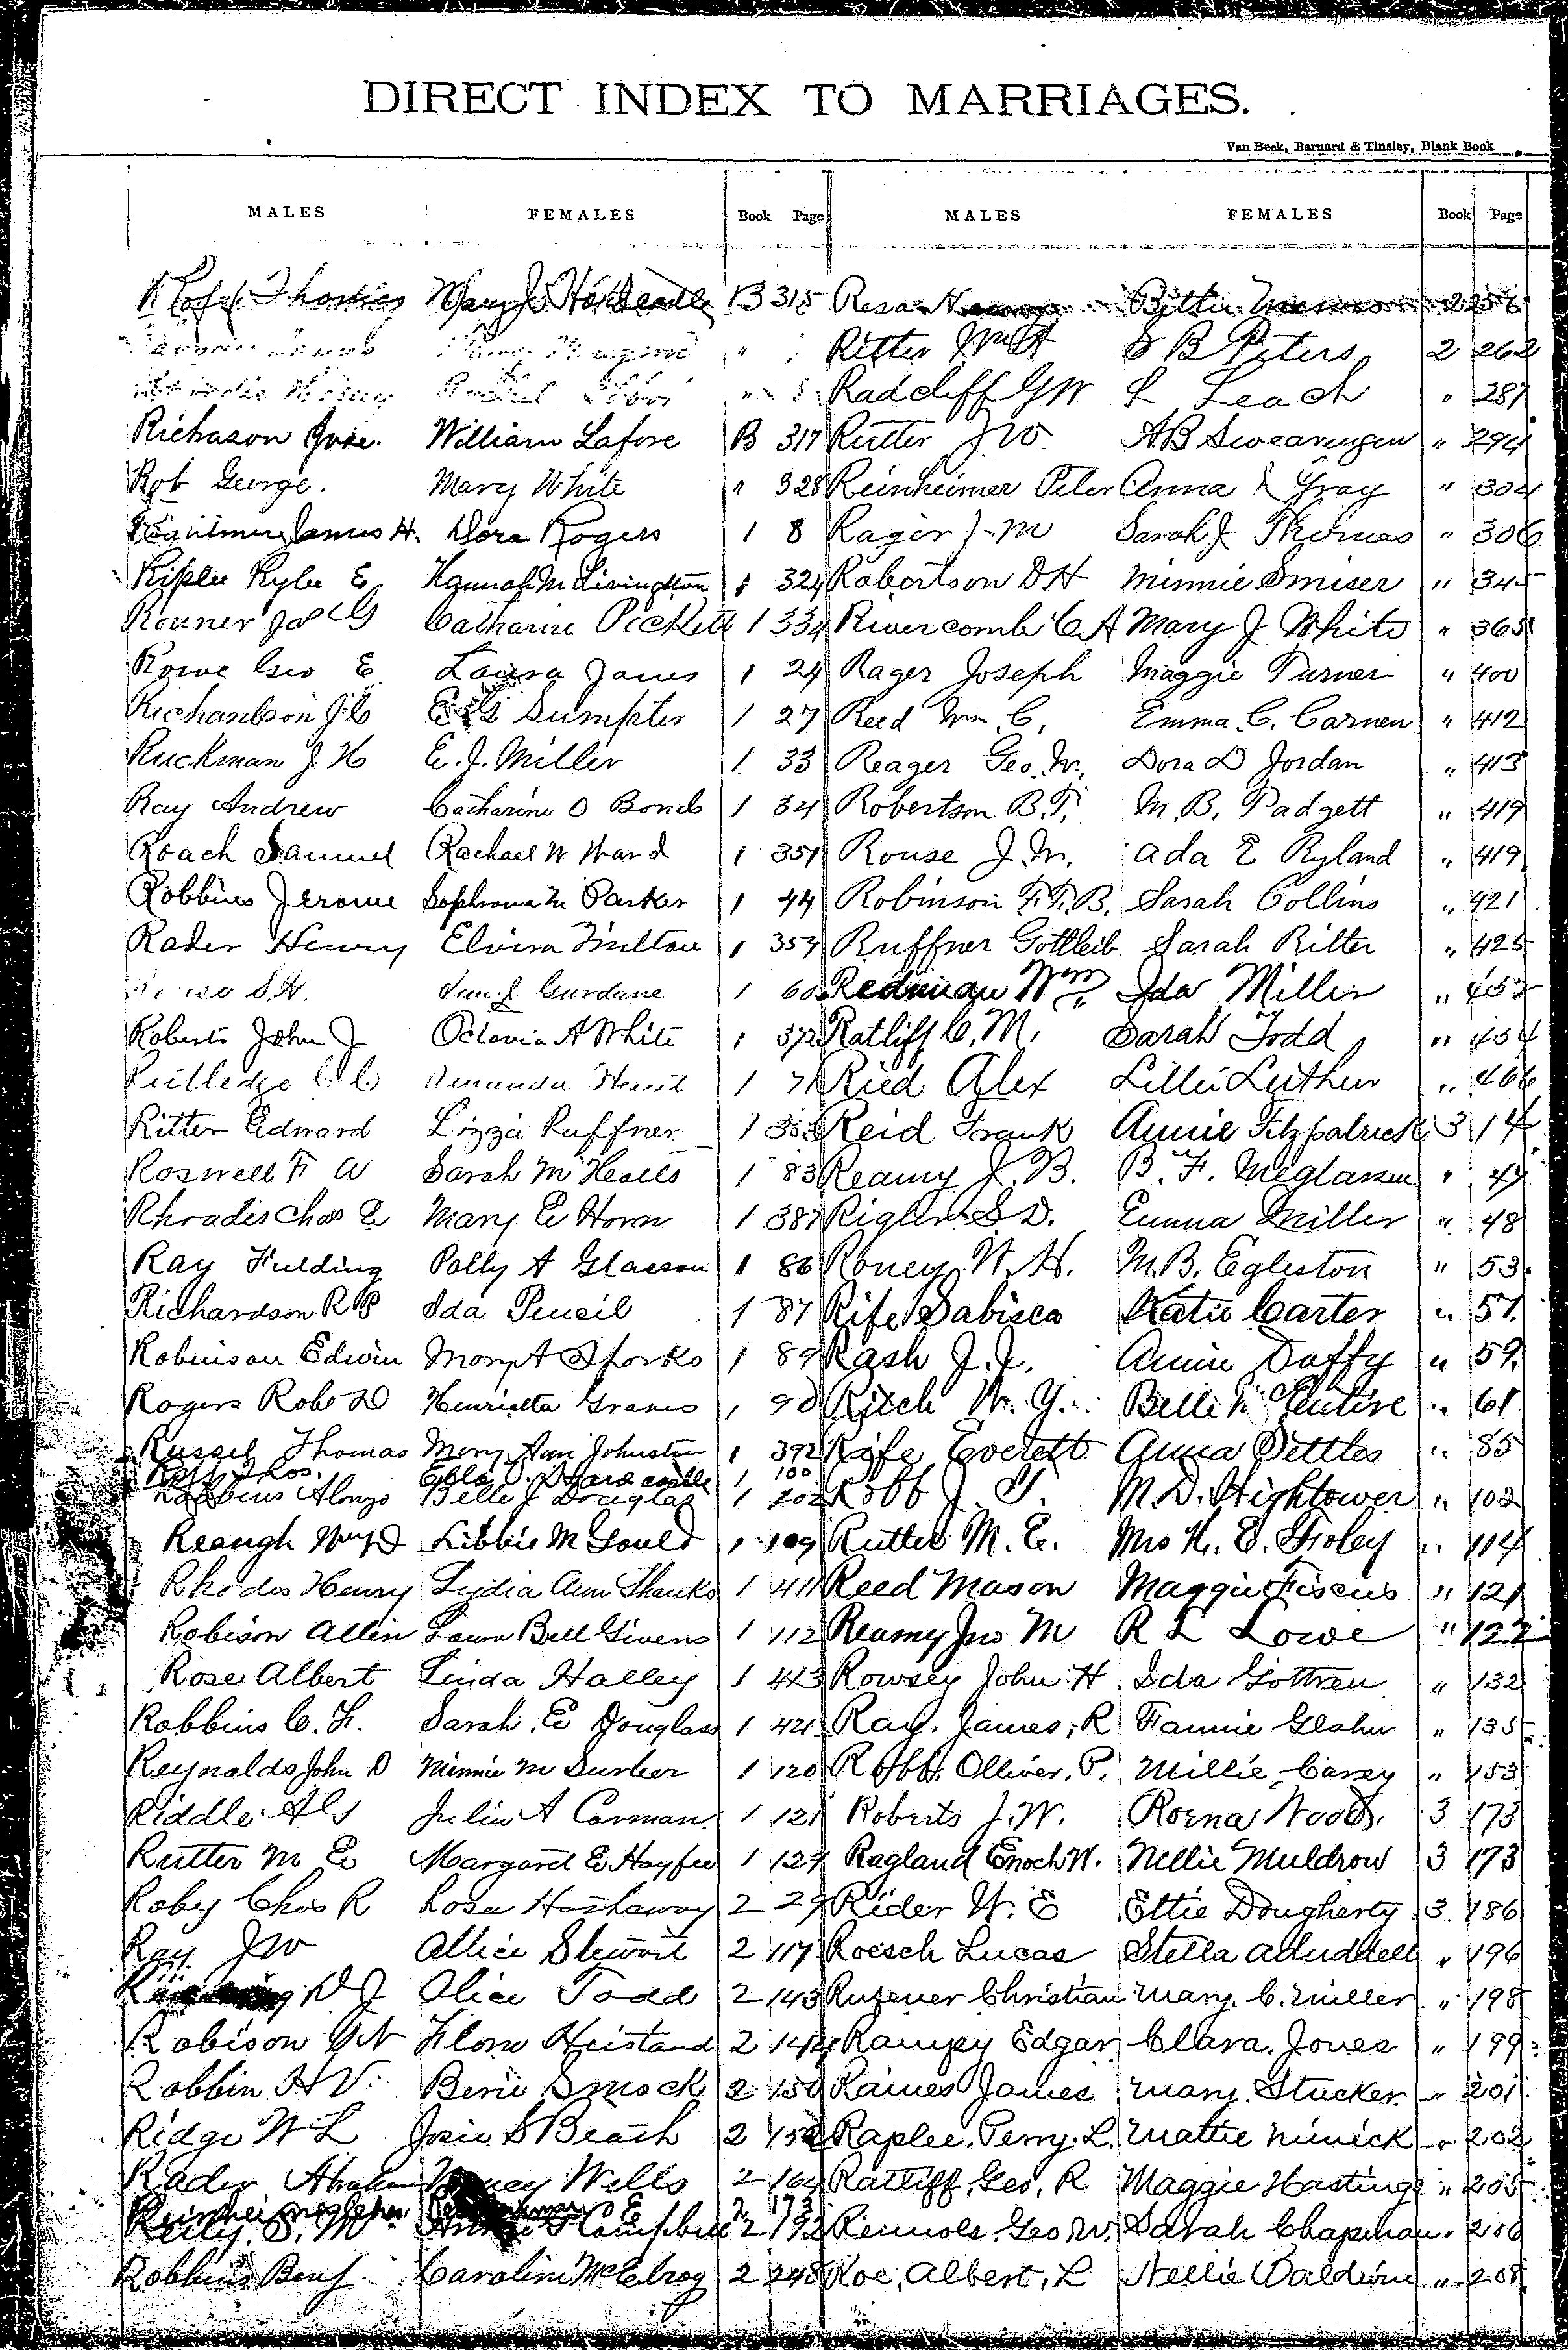 DIRECT INDEX TO MARRIAGES.
Van Beck, Barnard & Tinsley, Blank Book
MALES FEMALES Book Page MALES FEMALES Book Page
Thomas Mary J. B 315
"
"
Richason Jose. William Lafore B 317
Rob George. Mary White " 328
James H. Dora Rogers 1 8
Riplee Kyle E Hannah M Livingston 1 324
Rouner Jas G Catharine Pickett 1 334
Rowe Geo E Laura Jones 1 24
Richardson J.C Sumpter 1 27
Ruckman J. H E. J. Miller 1 33
Ray Andrew Catharine O Bonds 1 34
Roach Samuel Rachael W Ward 1 351
Robbins Jerome Sophrona M Parker 1 44
Rader Henry Elvira Milton 1 357
S.H. Gurdane 1 60
Roberts John J Octavia A White 1 372
Rutledge C C Amanda 1 71
Ritter Edward Lizzie Ruffner 1
Roswell F A Sarah M 1 83
Rhradis Chas E Mary E Horn 1 387
Ray Fielding Polly A Glaeson 1 86
Richardson R P Ida Pencil 1 87
Robinson Edwin Mary A Sparks 1 89
Rogers Robt D Henrietta Graves 1 90
Russel Thomas Mary Ann Johnston 1 392
Thos. Ella 1 100
Robbins Alonzo Belle J Douglas 1 102
Reaugh Wm D Libbie M Gould 1 109
Rhodes Henry Lydia Ann Shanks 1 411
Robison Allen Laura Bell Givens 1 112
Rose Albert Linda Halley 1 413
Robbins C. F. Sarah E Douglass 1 421
Reynolds John D Minnie M Surber 1 120
Riddle A C J Julia A Corman 1 121
Rutter M E Margaret E Hayfee 1 129
Roby Chas R Rosa Hathaway 2 29
Ray J W Allice Stewart 2 117
D J Alice Todd 2 143
Robison G N Flora Heistand 2 144
Robbin H V. Berie Smock 2 150
Ridge W L Josie S Beach 2 152
Rader Abraham Nancy Wells 2 164
2 173
Reily, S. M Campbell 2 192
Robbins Benj Caroline McElroy 2 248
Resa Bettie 2 256
Ritter Wm H S B Peters 2 262
Radcliff G W L Leach " 287
Rutter J W A B Swearingen " 294
Reinheimer Peter Anna L Gray " 304
Rager J. M Sarah J Thomas " 306
Robertson D H Minnie Smiser " 345
Rivercomb C A Mary J White " 365
Rager Joseph Maggie Turner " 400
Reed Wm C. Emma C. Carnen " 412
Reager Geo. W. Dora D Jordan " 413
Robertson B. T. M. B. Padgett " 419
Rouse J. W. Ada E Ryland " 419
Robinson F. F. B. Sarah Collins " 421
Ruffner Gottleib Sarah Ritter " 425
Redman Wm Ida Miller " 452
Ratliff C. M. Sarah Todd " 454
Ried Alex Lillie Luther " 466
Reid Frank Annie Fitzpatrick 3 14
Reamy J. B. B. F. Meglasson " 47
Rigler S D. Emma Miller " 48
Roney W. H. M. B. Egleston " 53
Rife Sabisca Katie Carter " 57
Rash J. J. Annie Duffy " 59
Ritch W. Y. Belle " 61
Rife Everett Anna Settles " 85
Robb J. T. M. D. Hightower " 102
Rutter M. E. Mrs K. E. Foley " 114
Reed Mason Maggie Fiscus " 121
Reamy Jno M R L Lowe " 122
Rowsey John H Ida Gottren " 132
Ray. James, R Fannie Glahn " 135
Robb. Olliver, P. Millie Carey " 153
Roberts J. W. Rorna Woods. 3 173
Ragland Enoch W. Nellie Muldrow 3 173
Rider W. E Ettie Dougherty 3 186
Roesch Lucas Stella Aluddell " 196
Ruzener Christian Mary. C. Miller " 198
Rampy Edgar Clara. Jones " 199
Raines James Mary. Stucker " 201
Raplee, Perry. L. Mattie Minick " 202
Ratliff, Geo, R Maggie Hastings " 205
Rennols. Geo. W. Sarah Chapman " 206
Roe, Albert, L Nellie Baldwin " 208